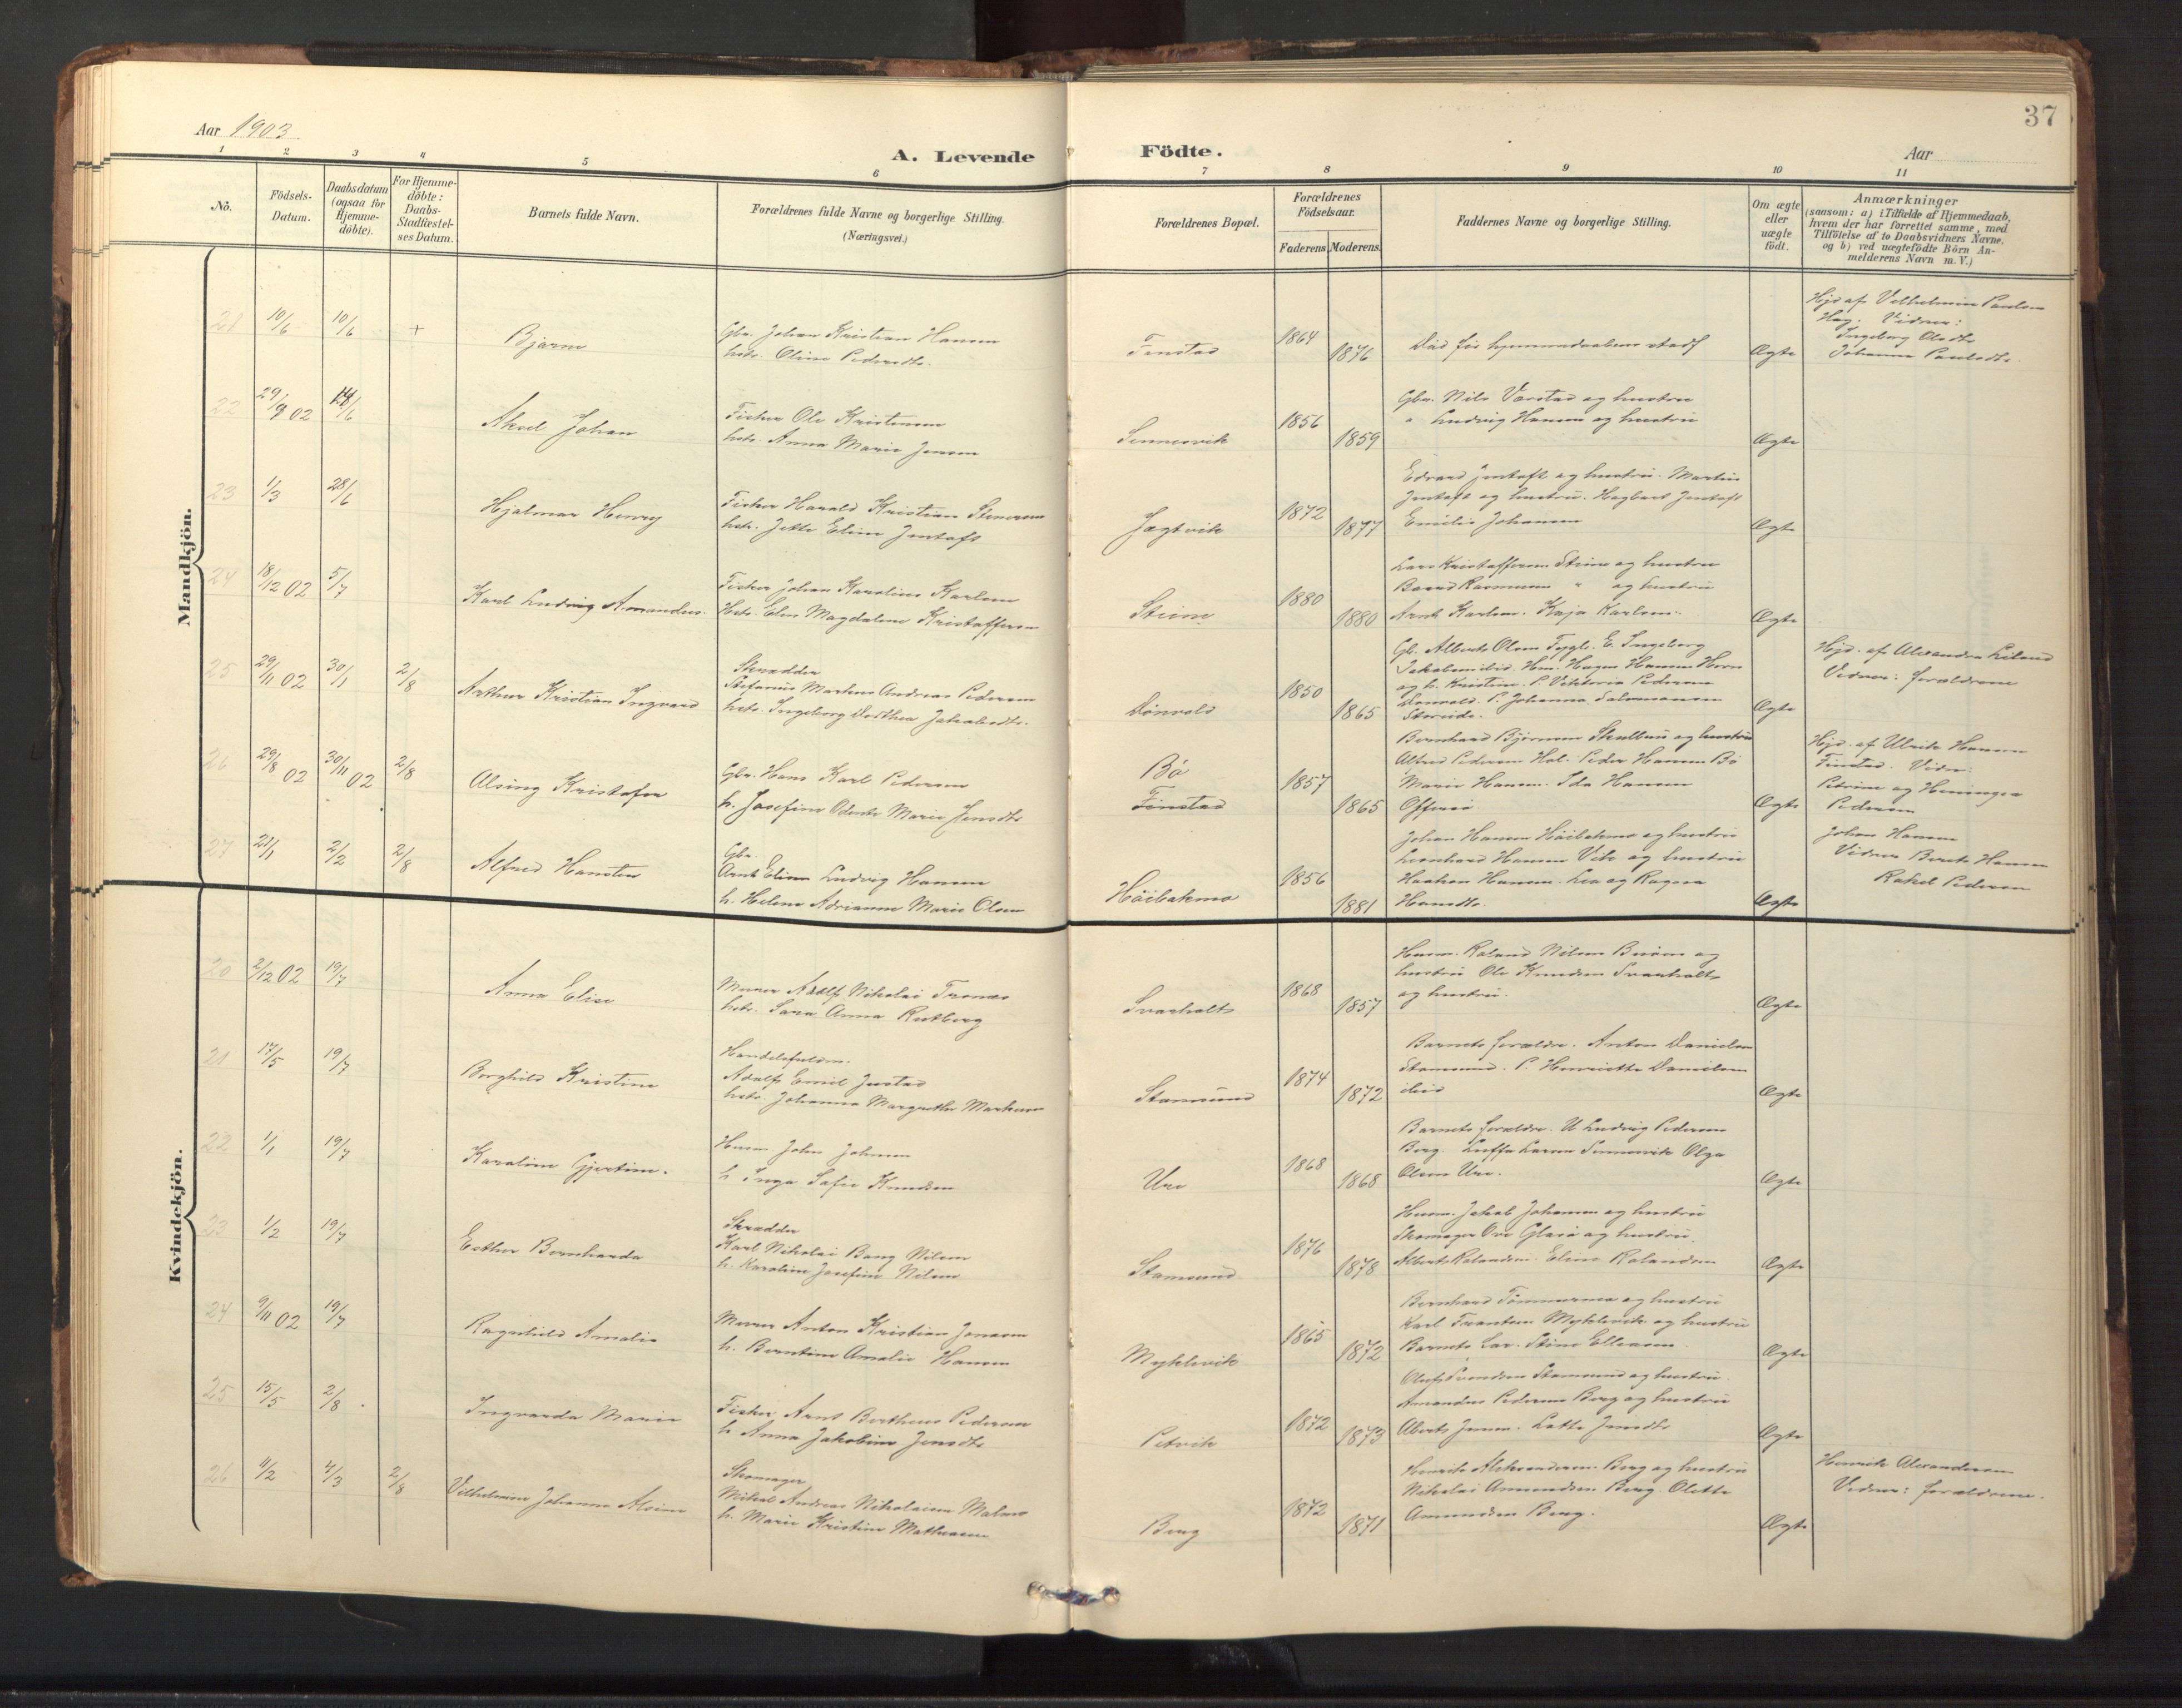 37
Aar 1903
A. Levende Födte.
Aar
1 2 3 4 5 6 7 8 9 10 11
No.
Födsels-Datum.
Daabsdatum (ogsaa for Hjemme-döbte).
For Hjemme-döbte: Daabs-Stadfæstel-ses Datum.
Barnets fulde Navn.
Forældrenes fulde Navne og borgerlige Stilling.
(Næringsvei.)
Forældrenes Bopæl.
Forældrenes Födselsaar.
Faderens. Moderens.
Faddernes Navne og borgerlige Stilling.
Om ægte eller uægte födt.
Anmærkninger
(saasom: a) i Tilfælde af Hjemmedaab, hvem der har forrettet samme, med Tilföielse af to Daabsvidners Navne. og b) ved uægtefödte Börn Anmelderens Navn m. V.)
Mandkjön.
21 10/6 10/6 + Bjarne
Gbr. Johan Kristian Hansen
hstr. Oline Pedersdtr.
Finstad 1864 1876
Död før hjemmedaabens stadf
Ægte
Hjd af Vilhelmine Paulsen
Hag. Vidner:
Ingeborg Olsdtr
Johanna Paulsdtr.
22 29/9 02 14/6 Aksel Johan
Fisker Ole Kristensen
hstr. Anna Marie Jensen
Sennesvik 1856 1859
Gbr. Nils Varstad og hustru
" Ludvig Hansen og hustru
Ægte
23 1/3 28/6 Hjalmar Henry
Fisker Harald Kristian Stenersen
hstr. Jette Eline Jentoft
Jægtvik 1872 1877
Edvard Jentoft og hustru. Martin
Jentoft og hustru. Hagbart Jentoft
Emilie Johansen
Ægte
24 18/12 02 5/7 Karl Ludvig Amandus.
Fisker Johan Karolius Karlsen
Hstr. Elen Magdalene Kristoffersen
Steine 1880 1880
Lars Kristoffersen Steine og hustru
Baard Rasmussen " og hustru
Arnt Karlsen. Kaja Karlsen.
Ægte
25 29/11 02 30/1 2/8 Arthur Kristian Ingvard
Skrædder
Stefanus Markus Andreas Pedersen
hstr. Ingeborg Dorthea Jakobsdtr.
Dönvold 1850 1865
Gb. Albert Olsen Tygle. E. Ingeborg
og h. Kristine. P. Viktoria Pedersen
Donvold. P. Johanna Salomonsen
Storeide.
Ægte
Hjd. af Alexandra Leland
Vidner: forældrene
26 29/8 02 30/11 02 2/8 Alsing Kristofer
Gbr. Hans Karl Pedersen
h. Josefine Odente Marie Jensdtr
Bö
Finstad 1857 1865
Bernhard Bjørnsen Skulbru og hustru
Alfred Pedersen Hol. Peder Hansen Bö
Marie Hansen. Ida Hansen
Offersö
Ægte
Hjd. af Ulrik Hansen
Finstad. Vidn:
Petrine og Henningea
Pedersen
27 21/1 2/2 2/8 Alfred Hansten
Gbr.
Arnt Einar Ludvig Hansen
h. Helene Adrianne Marie Olsen
Höibakmo 1856 1881
Johan Hansen Höibakmo og hustru
Leonhard Hansen Vik og hustru
Haakon Hansen. Lea og Ragna
Hansdtr.
Ægte
Johan Hansen
Vidner Berit Hansen
Rakel Pedersen
Kvindekjön.
20 2/12 02 19/7 Anna Elise
Murer Adolf Nikolai Tranes
hstr. Sara Anna Rustberg
Svarholt 1868 1857
Husm. Roland Nilsen Buöen og
hustru Ole Knudsen Svarholt
og hustru.
Ægte
21 17/5 19/7 Borghild Kristine
Handelsfuldm.
Adolf Emil Justad
hstr. Johanna Margrethe Markussen
Stamsund 1874 1872
Barnets forældre. Anton Danielsen
Stamsund. P. Henriette Danielsen
ibid
Ægte
22 1/1 19/7 Karoline Gjertine.
Husm John Johnsen
h. Inga Sofie Knudsen
Ure 1868 1868
Barnets forældre. U Ludvig Pedersen
Berg. Luffa Larsen Sennesvik Olga
Olsen Ure.
Ægte
23 1/2 19/7 Esther Bernharda
Skrædder
Karl Nikolai Bang Nilsen
h. Karoline Josefine Nilsen
Stamsund 1876 1878
Husm. Jakob Johansen og hustru
Skomager Ove Glasö og hustru.
Albert Rolandsen. Eline Rolandsen
Ægte
24 9/11 02 19/7 Ragnhild Amalie
Murer Anton Kristian Jonassen
h. Berntine Amalie Hansen
Myklevik 1865 1872
Bernhard Tömmermo og hustru
Karl Frantsen Myklevik og hustru
Barnets far. Stine Ellissen
Ægte
25 15/5 2/8 Ingvarda Marie
Fisker Arnt Bertheus Pedersen
h Anna Jakobine Jensdtr
Petvik 1872 1873
Oluf Svendsen Stamsund og hustru.
Amandus Pedersen Berg og hustru
Albert Jensen. Lotte Jensdtr
Ægte
26 11/2 4/3 2/8 Vilhelmine Johanne Alvine
Skomager
Mikal Andreas Nikolaisen Malmo
h. Marie Kristine Mathisen
Berg 1872 1871
Henrik Aleksandersen Berg og hustru
Nikolai Amundsen Berg. Olette
Amundsen Berg.
Ægte
Henrik Alexandersen
Vidner: forældrene.